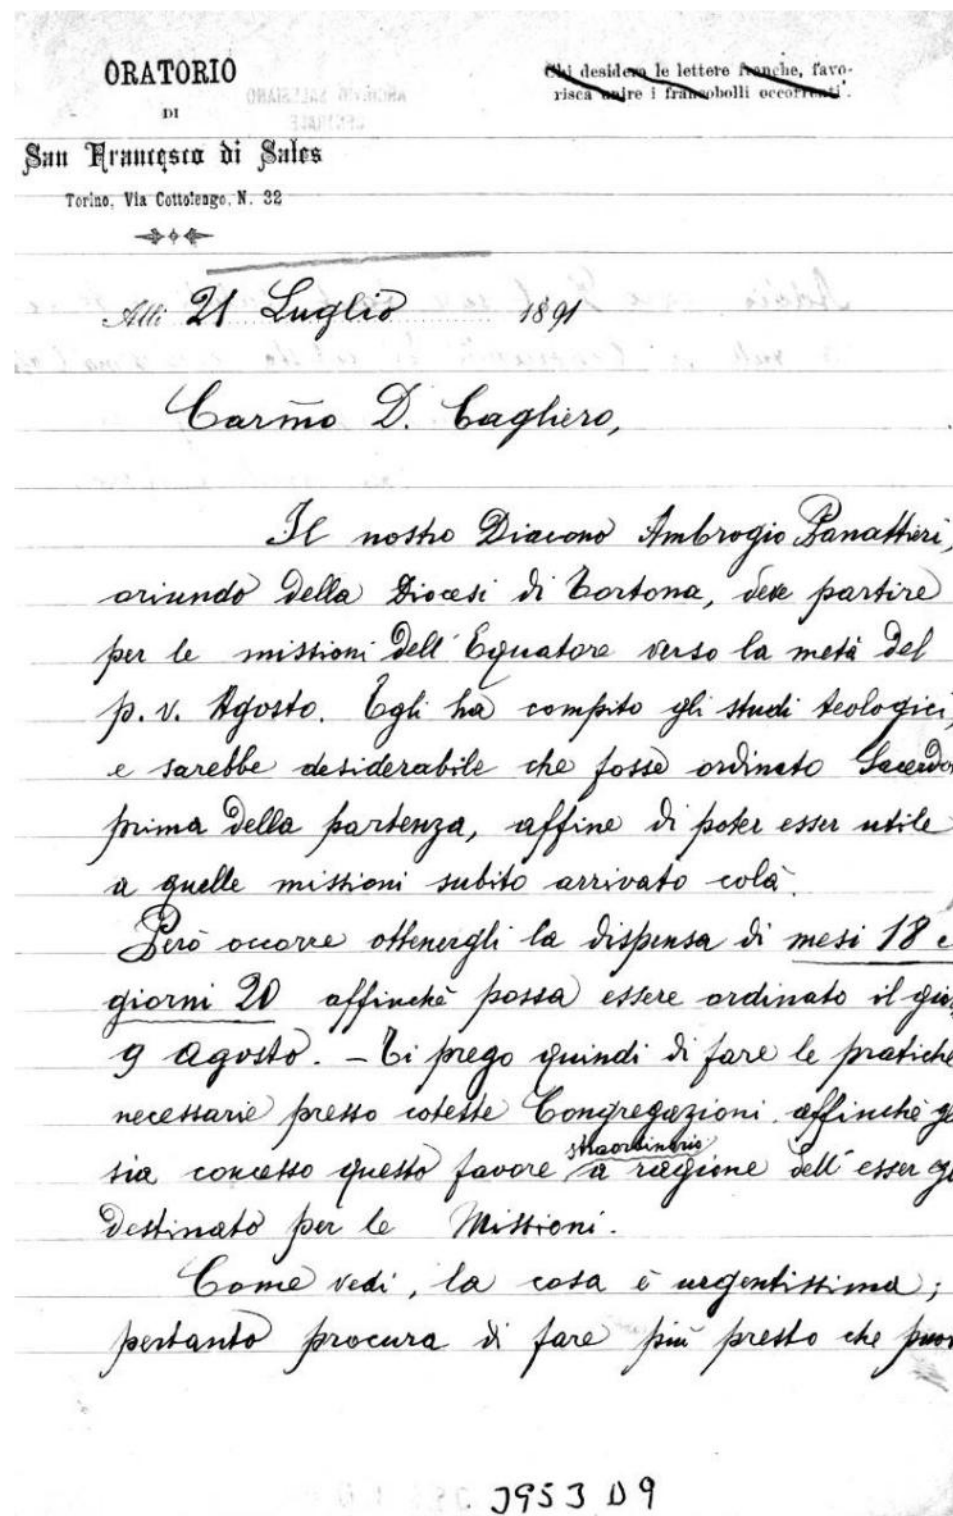 ORATORIO
DI
San Francesco di Sales
Torino, Via Cottolengo, N. 32
Chi desidera le lettere franche, favo-
risca unire i francobolli occorrenti.
ARCHIVIO SALESIANO
CENTRALE
Alli 21 Luglio 1891
Carmo D. Cagliero,
Il nostro Diacono Ambrogio Panattieri,
oriundo della Diocesi di Tortona, deve partire
per le missioni dell'Equatore verso la metà del
p. v. Agosto. Egli ha compito gli studi teologici,
e sarebbe desiderabile che fosse ordinato Sacerdo
prima della partenza, affine di poter esser utile
a quelle missioni subito arrivato colà.
Però occorre ottenergli la dispensa di mesi 18 e
giorni 20 affinchè possa essere ordinato il gior
9 Agosto. - Ti prego quindi di fare le pratiche
necessarie presso coteste Congregazioni affinchè gl
straordinario
sia concesso questo favore a ragione dell'esser eg
destinato per le Missioni.
Come vedi, la cosa è urgentissima;
pertanto procura di fare più presto che puoi
J953 D9